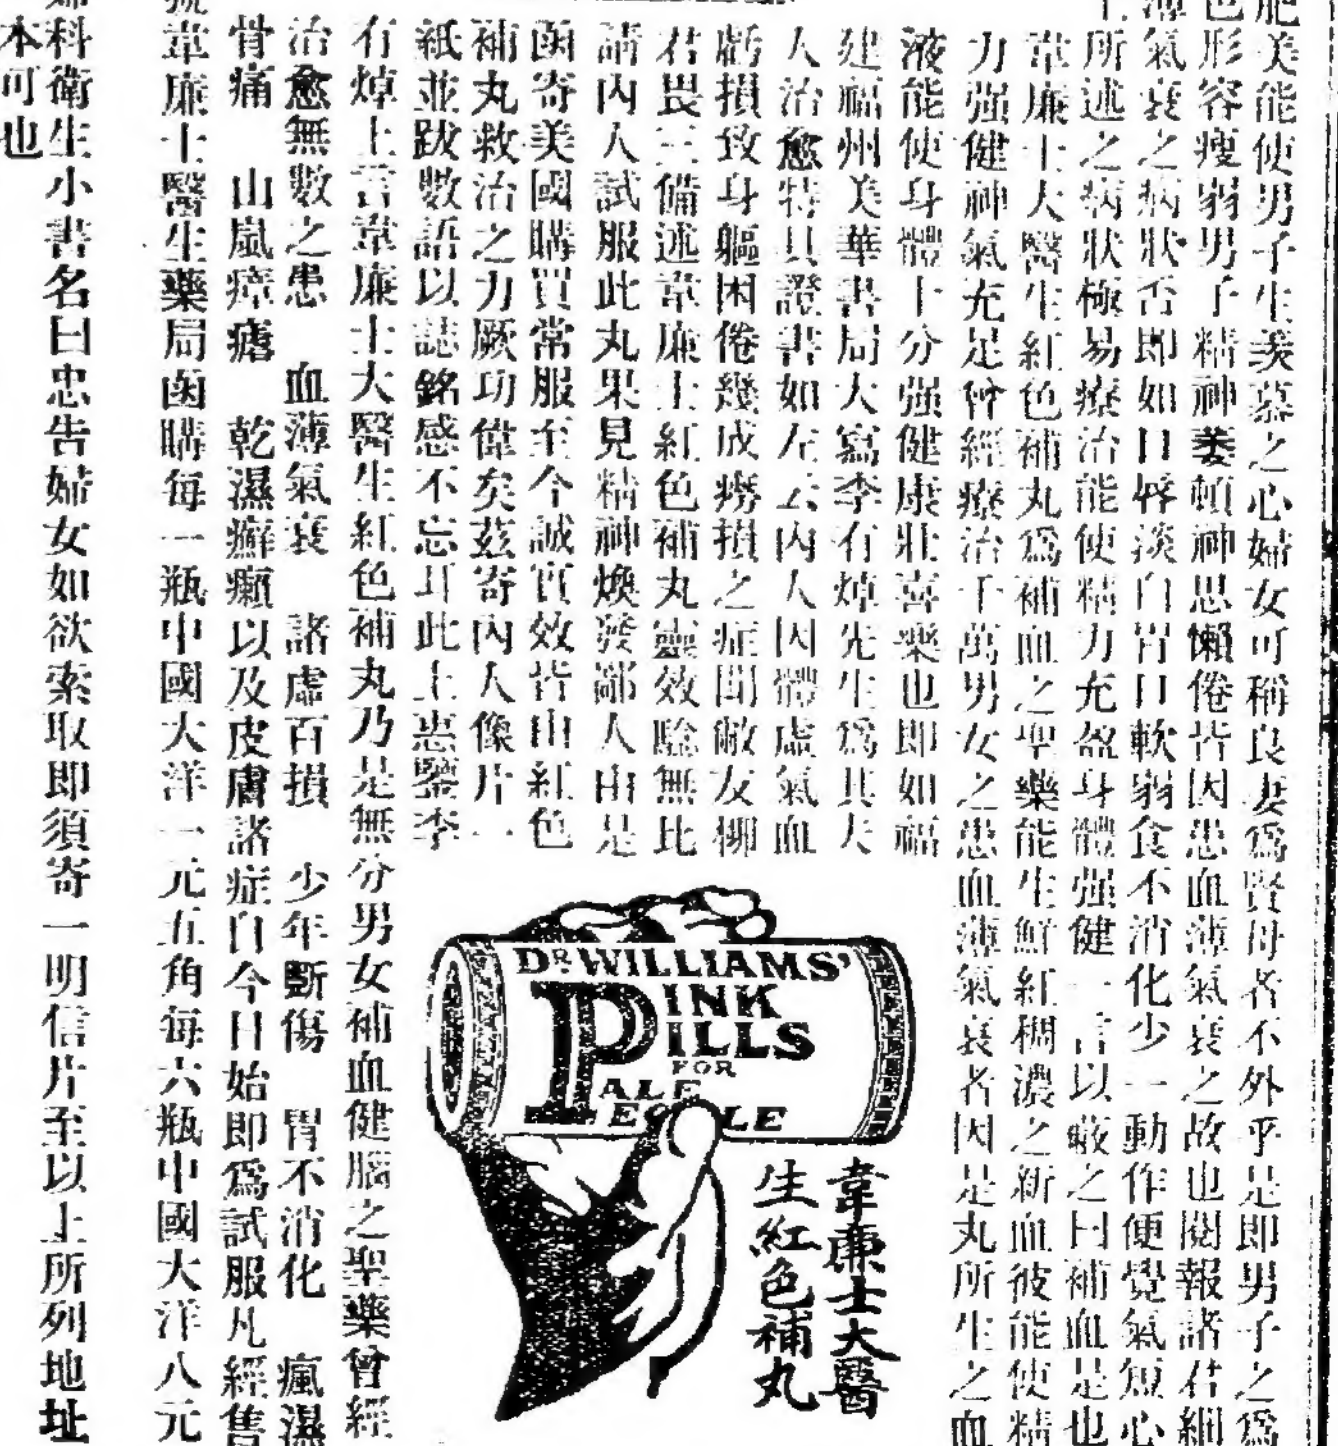 肥美能使男子生羨慕之心婦女可稱良妻爲賢母者不外乎是即男子之爲
色形容瘦弱男子精神萎頓神思懶倦皆因患血薄氣衰之故也閱報諸君細
薄氣衰之病狀否即如口唇淡白胃口軟弱食不消化少一動作便覺氣短心
上所述之病狀極易療治能使精力充盈身體强健一言以蔽之曰補血是也
韋廉士大醫生紅色補丸爲補血之聖藥能生鮮紅稠濃之新血彼能使精
力强健神氣充足曾經療治千萬男女之患血薄氣衰者因是丸所生之血
液能使身體十分强健康壯喜樂也即如福
建福州美華書局大寫李有焯先生爲其夫
人治愈特具證書如左云內人因體虛氣血
虧損致身軀困倦幾成癆損之症聞敝友柳
君畏三備述韋廉士紅色補丸靈效驗無比
請內人試服此丸果見精神煥發鄙人由是
函寄美國購買常服至今誠實效皆由紅色
補丸救治之力厥功偉矣茲寄內人像片一
紙並跋數語以誌銘感不忘耳此上惠鑒李
DR. WILLIAMS'
PINK
PILLS
FOR
PALE
PEOPLE
韋廉士大醫
生紅色補丸
有焯上言韋廉士大醫生紅色補丸乃是無分男女補血健腦之聖藥曾經
治愈無數之患 血薄氣衰 諸虛百損 少年斲傷 胃不消化 瘋濕
骨痛 山嵐瘴瘧 乾濕癬癩以及皮膚諸症自今日始即爲試服凡經售
號韋廉士醫生藥局函購每一瓶中國大洋一元五角每六瓶中國大洋八元
婦科衛生小書名曰忠告婦女如欲索取即須寄一明信片至以上所列地址
本可也